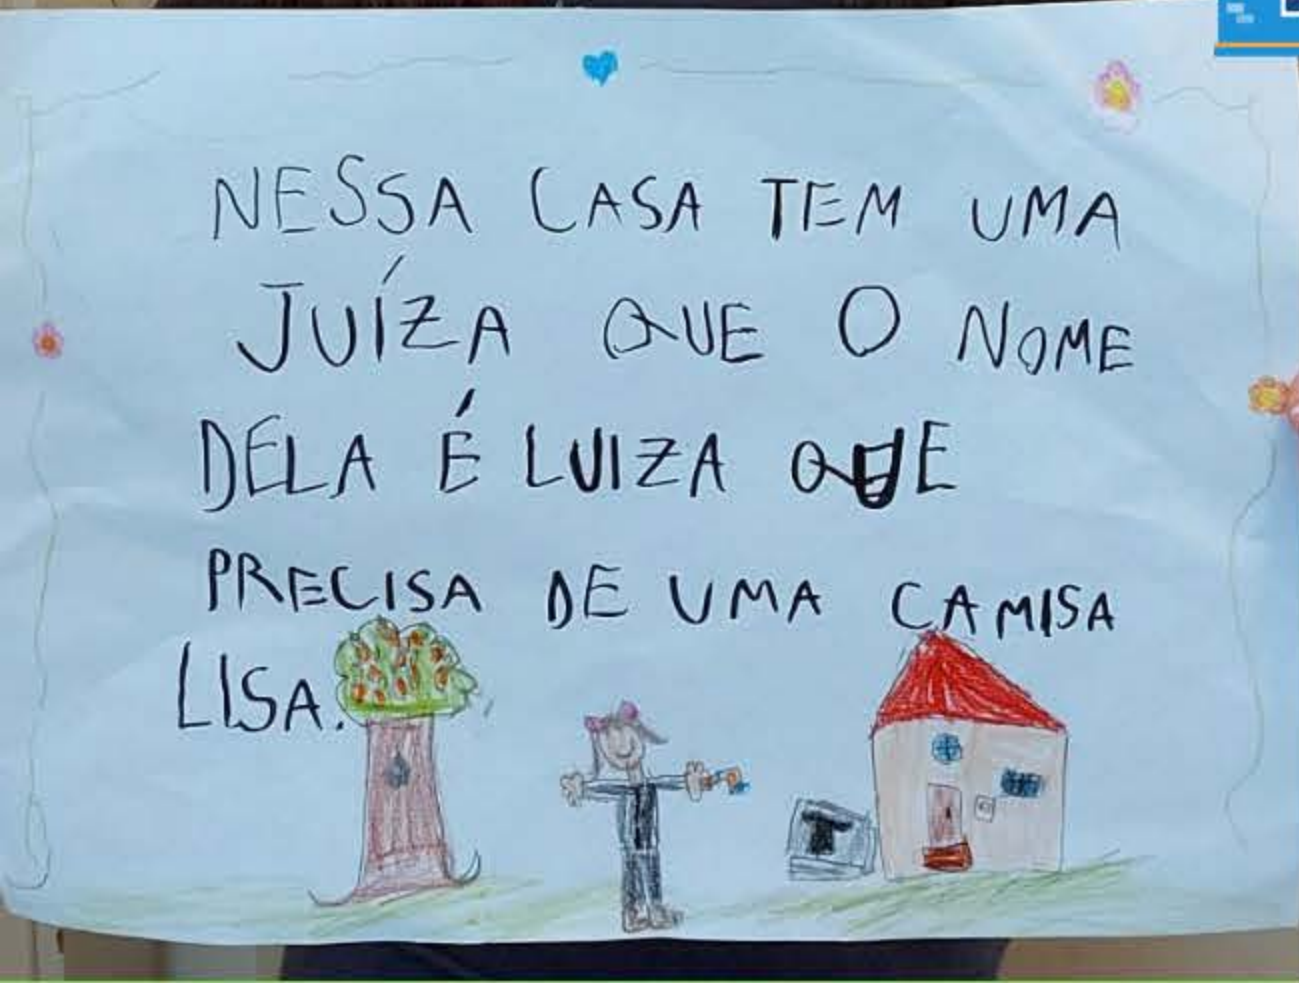 NESSA CASA TEM UMA
JUÍZA QUE O NOME
DELA É LUIZA QUE
PRECISA DE UMA CAMISA
LISA.